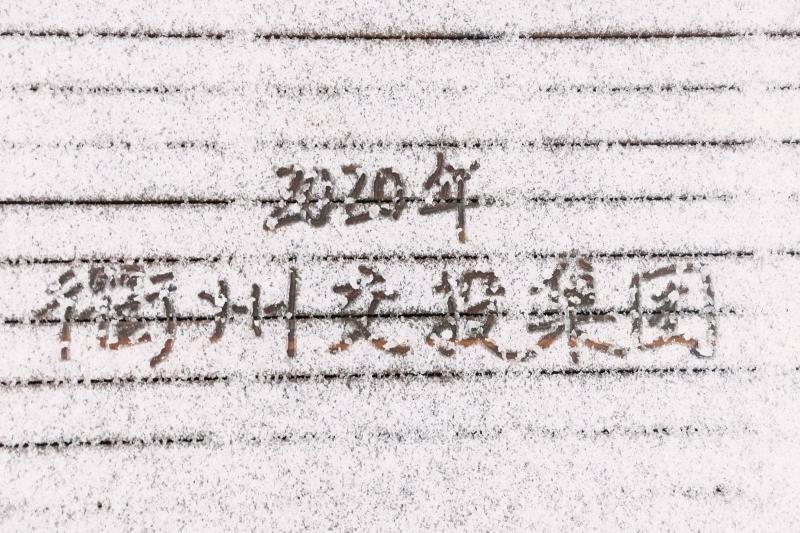 2020年
衢州交投集团